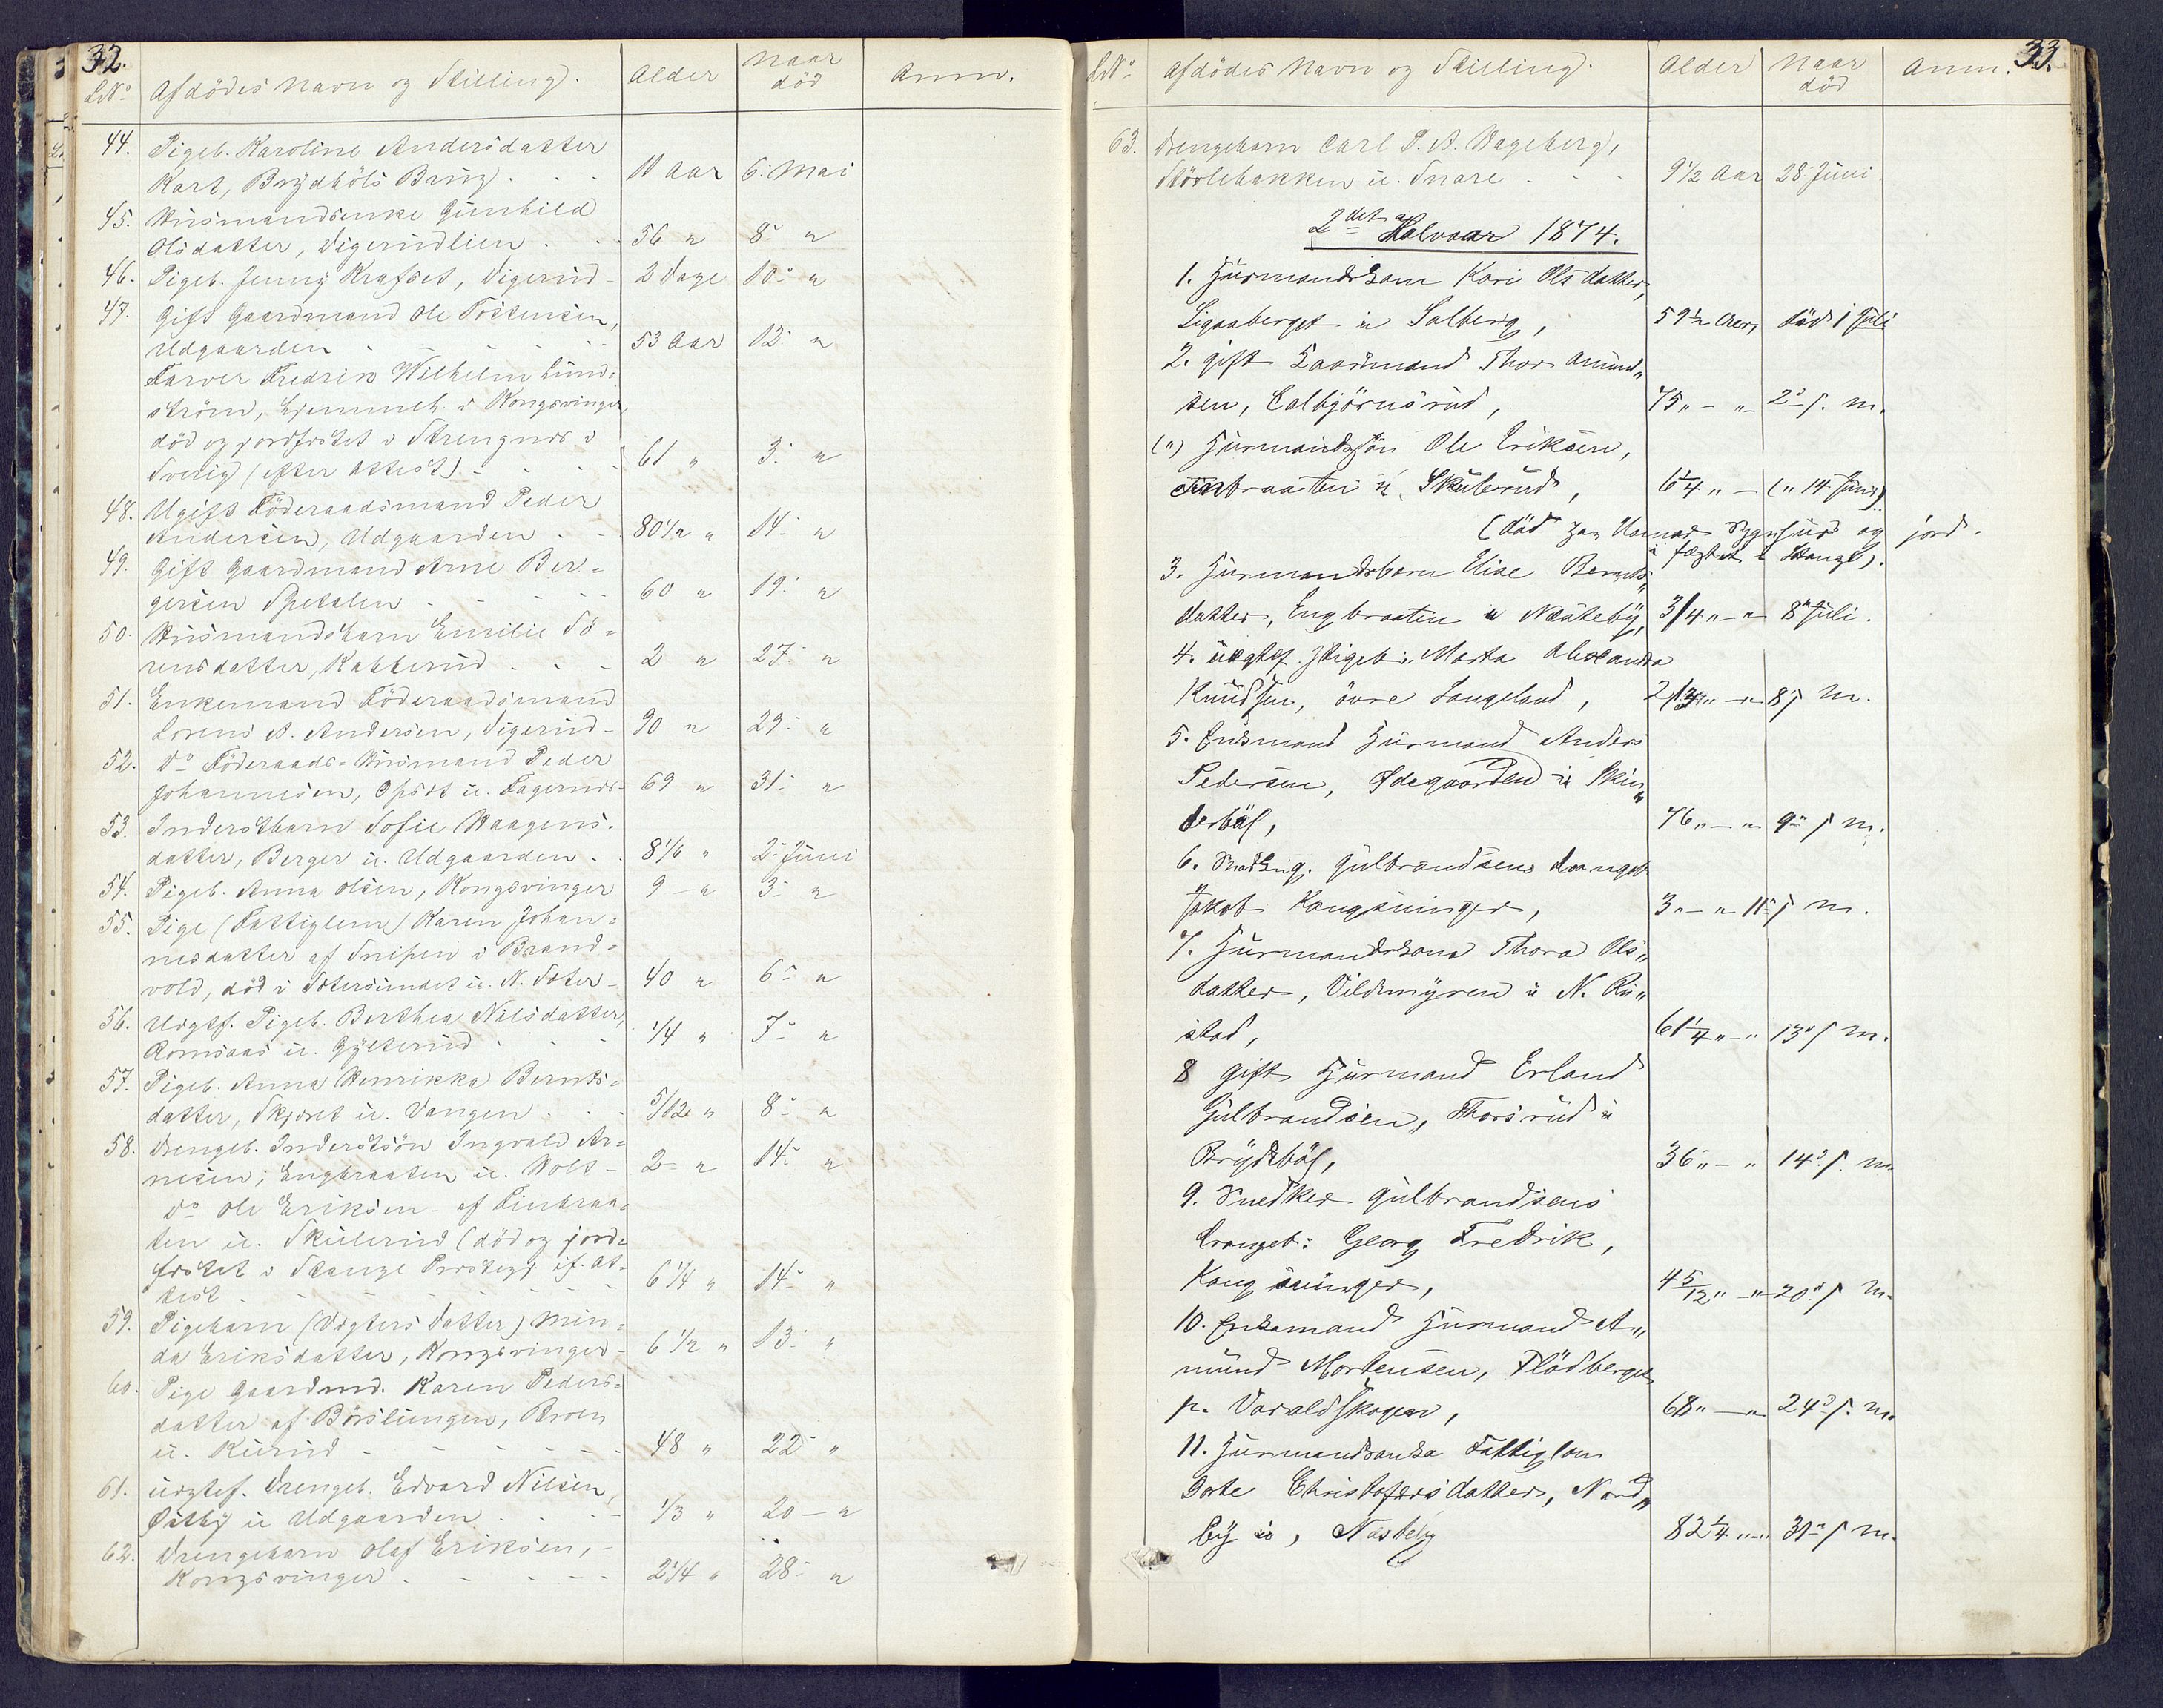 32.
LNo Afdödes Navn og Stilling. Alder Naar död Anm.
44. Pigeb. Karoline Andersdatter
Kart, Brydböls Brug. . . 11 Aar 6. Mai
45. Husmandsenke Gunhild
Olsdatter, Digerudlien . . 56 " 8 "
46. Pigeb. Jenny Krafset, Digerud - 2 Dage 10 "
47. Gift Gaardmand Ole Tostensen,
Udgaarden . - - - - 53 Aar 12 "
Farver Fredrik Wilhelm Lund=
ström, hjemmeh. i Kongsvinger,
död og jordfæstet i Strengnæs i
Sverig (efter Attest) - - - 61 " 3. "
48. Ugift Föderaadsmand Peder
Andersen, Udgaarden . - 80 1/2 " 14 "
49. Gift Gaardmand Arne Ber=
gersen Spetalen - - - - 60 " 19. "
50. Husmandsbarn Emilie Sö=
rensdatter, Kabberud . . - 2 " 27. "
51. Enkemand Föderaadsmand
Lorens A. Andersen, Digerud - 90 " 29. "
52. Do Föderaads-Husmand Peder
Johannesen, Opset u. Fagernæs - 69 " 31. "
53. Inderstbarn Sofie Haagens=
datter, Berger u. Udgaarden . . 8 1/6 " 2. Juni
54. Pigeb. Anna Olsen, Kongsvinger 9 - " 3. "
55. Pige (Fattiglem) Karen Johan=
nesdatter af Snipen i Brand=
vold, död i Sætersundet u. N. Sæter - 40 " 6. "
56. Uægtf. Pigeb. Berthea Nilsdatter,
Romsaas u. Gylterud . . . 1/4 " 7. "
57. Pigeb. Anna Henrikka Bernts=
datter, Skjæret u. Vangen . . . 5/12 " 8. "
58. Drengeb. Inderstsön Ingvald Ar=
nesen, Engbraaten u. Holt - 2 - " 14. "
Do Ole Eriksen - af Finbraa=
ten u. Skulerud (död og jord=
fæstet i Stange Præstegj. if. At=
test - - - - - - 6 1/4 " 14. "
59. Pigebarn (Vægters Datter) Min=
da Eriksdatter, Kongsvinger - 6 1/2 " 13. "
60. Pige Gaardmd. Karen Peders=
datter af Börslungen, Broen
u. Rurud - - - - - 48 " 22 "
61. uægtef. Drengeb. Edvard Nilsen,
Östby u Udgaarden . . . - 1/3 " 20 - "
62. Drengebarn Olaf Eriksen, -
Kongsvinger . - - - - 2 1/4 " 28 - "
33.
LNo Afdödes Navn og Stilling. Alder Naar död Anm.
63. Drengebarn Carl P. A. Hageberg,
Störlebakken u. Snare - - - 9 1/2 Aar 28 Juni.
2det Halvaar 1874.
1. Husmandskone Kari Olsdatter,
Ligaaberget u Solberg, 59 1/2 Aar, död 1 Juli
2. gift Gaardmand Thor Amund„
sen, Kolbjörnsrud, 75 " - " 2 s. m.
(") Husmandssön Ole Eriksen,
Finbraaten u. Skulerud, 6 1/4 " - (" 14 Juni).
(död paa Hamar Sygehus og jord-
fæstet i Stange).
3. Husmandsbarn Elise Bernts„
datter, Engbraaten u Næsteby, 3/4 " - " 8 Juli.
4. uægtef. Pigeb: Marta Alexandra
Knudsen, övre Langeland, 2 1/4 " - " 8 s m.
5. Enkemand Husmand Anders
Pedersen, Ödegaarden u Skin„
derböl, 76 " - " 9 s m.
6. Snedkrg. Gulbrandsens drengeb
Jakob Kongsvinger, 3 " - " 11 s m.
7. Husmandskone Thora Ols„
datter, Vildmyren u N. Ru„
stad, 61 1/4 " - " 13 s m.
8 gift Husmand Erland
Gulbrandsen, Thorsrud u
Brydeböl, 36 " - " 14 s. m
9. Snedker Gulbrandsens
Drengeb: Georg Fredrik,
Kongsvinger, 4 5/12 " - " 20 s m.
10. Enkemand Husmand A„
mund Mortensen, Flödberget
p. Varaldskogen, 68 " - " 24 s. m
11. Husmandsenke Fattiglem
Dorte Christofersdatter, Nord„
by u, Næsteby 82 1/4 " - " 31 s m.